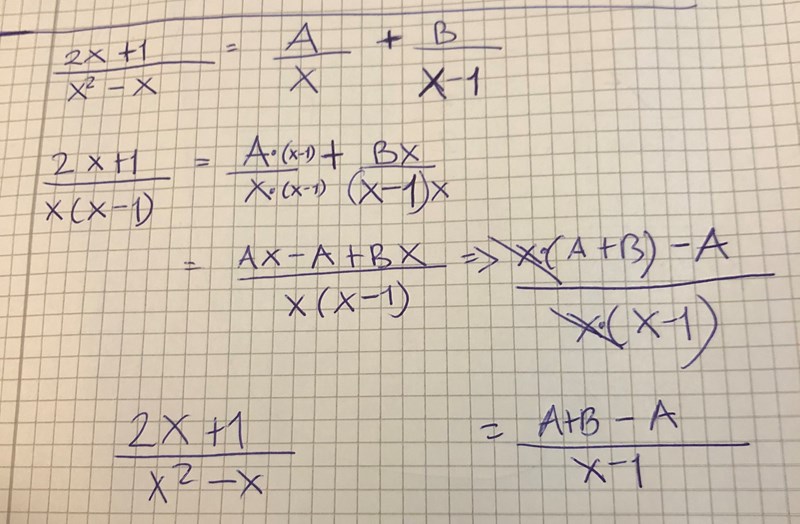 (2x+1)/(x² - x) = A/x + B/(x-1)
(2x+1)/(x(x-1)) = (A·(x-1))/(x·(x-1)) + (Bx)/((x-1)x)
= (Ax-A+Bx)/(x(x-1)) => (x·(A+B)-A)/(x·(x-1))
(2x+1)/(x²-x) = (A+B-A)/(x-1)